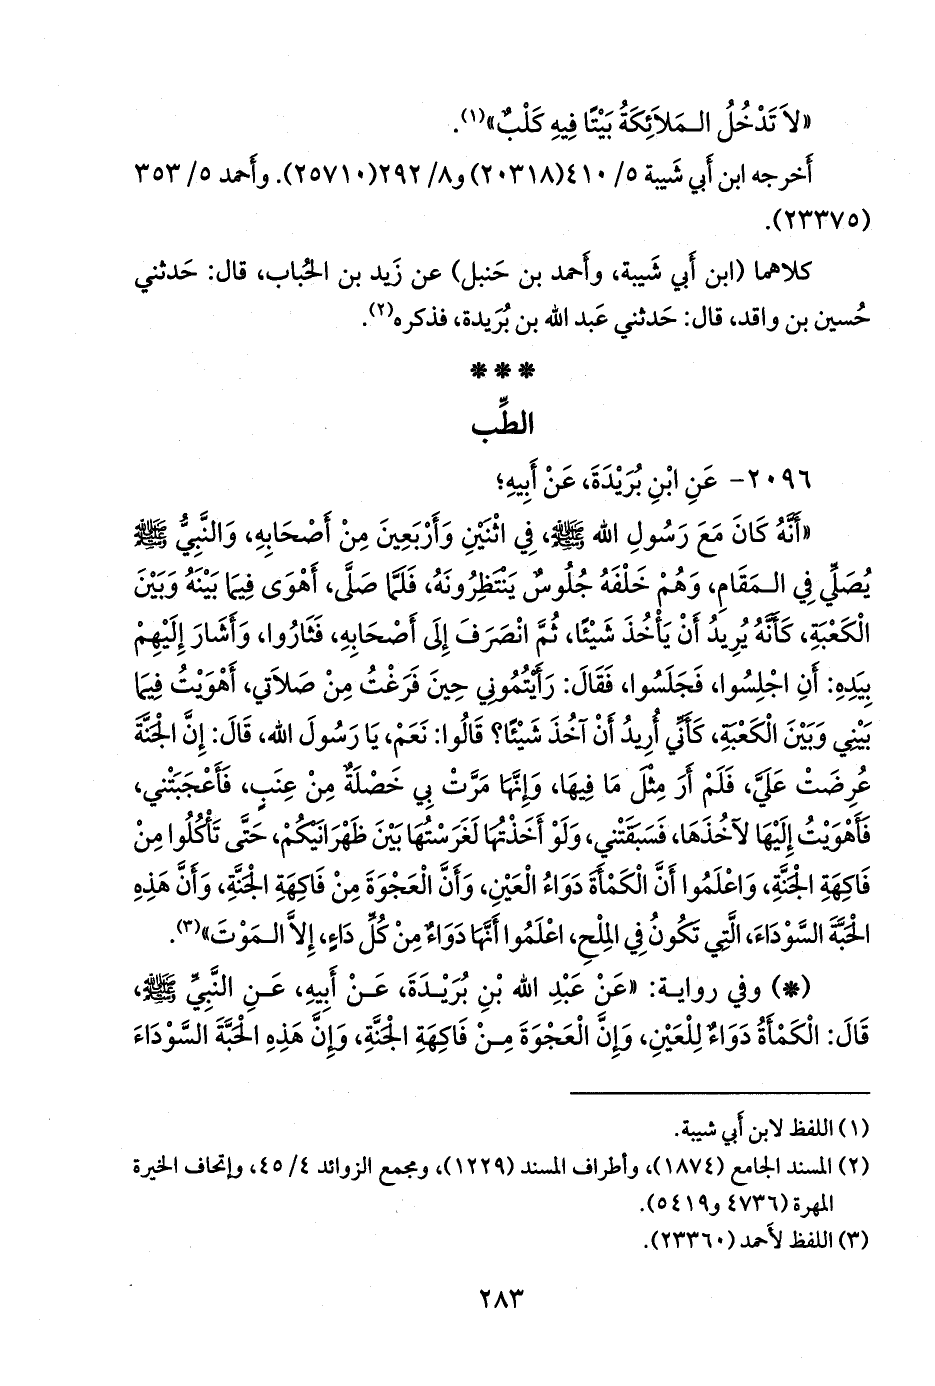 «لاَ تَدْخُلُ الـمَلاَئِكَةُ بَيْتًا فِيهِ كَلْبٌ»(١).
أَخرجه ابن أَبي شَيبة ٥/ ٤١٠(٢٠٣١٨) و٨/ ٢٩٢(٢٥٧١٠). وأَحمد ٥/ ٣٥٣
(٢٣٣٧٥).
كلاهما (ابن أَبي شَيبة، وأَحمد بن حَنبل) عن زَيد بن الحُباب، قال: حَدثني
حُسين بن واقد، قال: حَدثني عَبد الله بن بُرَيدة، فذكره(٢).
* * *
الطِّب
٢٠٩٦- عَنِ ابْنِ بُرَيْدَةَ، عَنْ أَبِيهِ؛
«أَنَّهُ كَانَ مَعَ رَسُولِ الله ﷺ، فِي اثْنَيْنِ وَأَرْبَعِينَ مِنْ أَصْحَابِهِ، وَالنَّبِيُّ ﷺ
يُصَلِّي فِي الـمَقَامِ، وَهُمْ خَلْفَهُ جُلُوسٌ يَنْتَظِرُونَهُ، فَلَمَّا صَلَّى، أَهْوَى فِيمَا بَيْنَهُ وَبَيْنَ
الْكَعْبَةِ، كَأَنَّهُ يُرِيدُ أَنْ يَأْخُذَ شَيْئًا، ثُمَّ انْصَرَفَ إِلَى أَصْحَابِهِ، فَثَارُوا، وَأَشَارَ إِلَيْهِمْ
بِيَدِهِ: أَنِ اجْلِسُوا، فَجَلَسُوا، فَقَالَ: رَأَيْتُمُونِي حِينَ فَرَغْتُ مِنْ صَلاَتِي، أَهْوَيْتُ فِيمَا
بَيْنِي وَبَيْنَ الْكَعْبَةِ، كَأَنِّي أُرِيدُ أَنْ آخُذَ شَيْئًا؟ قَالُوا: نَعَمْ، يَا رَسُولَ الله، قَالَ: إِنَّ الْجَنَّةَ
عُرِضَتْ عَلَيَّ، فَلَمْ أَرَ مِثْلَ مَا فِيهَا، وَإِنَّهَا مَرَّتْ بِي خَصْلَةٌ مِنْ عِنَبٍ، فَأَعْجَبَتْنِي،
فَأَهْوَيْتُ إِلَيْهَا لآخُذَهَا، فَسَبَقَتْنِي، وَلَوْ أَخَذْتُهَا لَغَرَسْتُهَا بَيْنَ ظَهْرَانَيْكُمْ، حَتَّى تَأْكُلُوا مِنْ
فَاكِهَةِ الْجَنَّةِ، وَاعْلَمُوا أَنَّ الْكَمْأَةَ دَوَاءُ الْعَيْنِ، وَأَنَّ الْعَجْوَةَ مِنْ فَاكِهَةِ الْجَنَّةِ، وَأَنَّ هَذِهِ
الْحَبَّةَ السَّوْدَاءَ، الَّتِي تَكُونُ فِي المِلْحِ، اعْلَمُوا أَنَّهَا دَوَاءٌ مِنْ كُلِّ دَاءٍ، إِلاَّ الـمَوْتَ»(٣).
(*) وفي رواية: «عَنْ عَبْدِ الله بْنِ بُرَيْدَةَ، عَنْ أَبِيهِ، عَنِ النَّبِيِّ ﷺ،
قَالَ: الْكَمْأَةُ دَوَاءٌ لِلْعَيْنِ، وَإِنَّ الْعَجْوَةَ مِنْ فَاكِهَةِ الْجَنَّةِ، وَإِنَّ هَذِهِ الْحَبَّةَ السَّوْدَاءَ
(١) اللفظ لابن أَبي شيبة.
(٢) المسند الجامع (١٨٧٤)، وأطراف المسند (١٢٢٩)، ومجمع الزوائد ٤/ ٤٥، وإتحاف الخيرة
المهرة (٤٧٣٦ و٥٤١٩).
(٣) اللفظ لأَحمد (٢٣٣٦٠).
٢٨٣